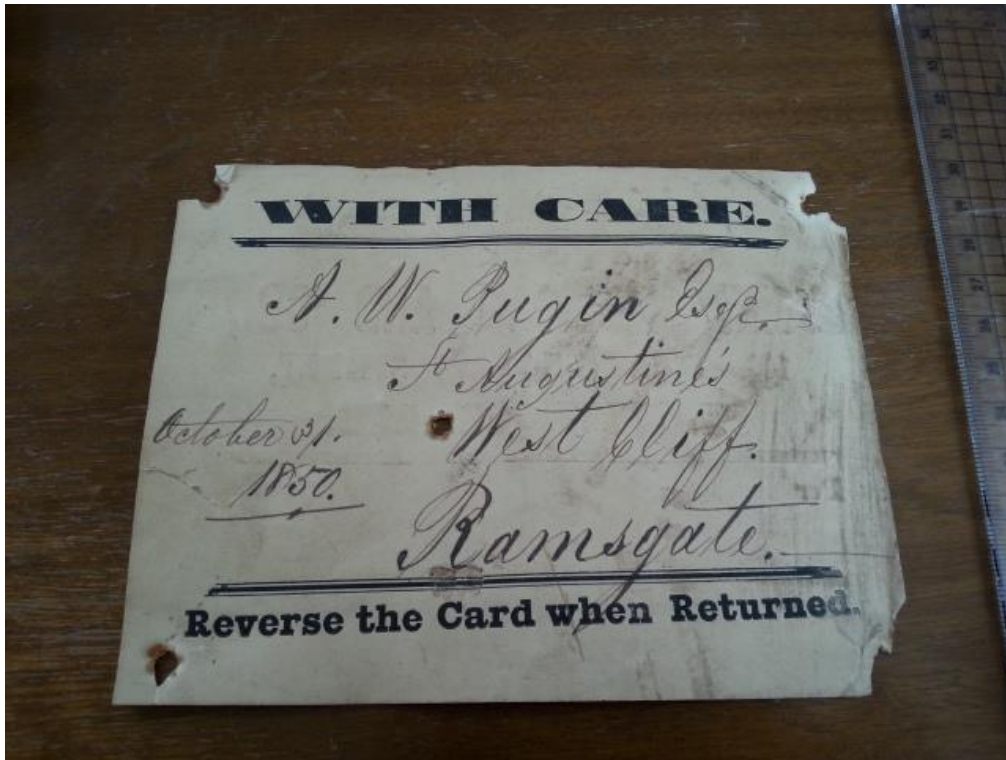 WITH CARE.
A. W. Pugin Esqr.
St Augustine's
West Cliff.
October 31.
1850.
Ramsgate.
Reverse the Card when Returned.